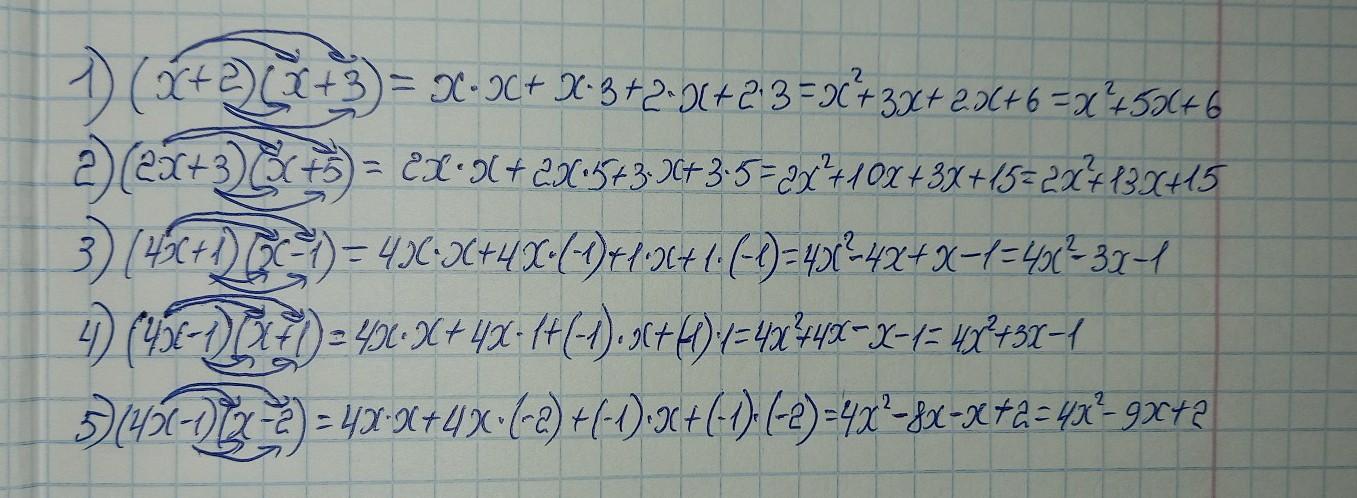 1) (x+2)(x+3) = x·x + x·3+2·x+2·3=x²+3x+2x+6=x²+5x+6
2) (2x+3)(x+5) = 2x·x+2x·5+3·x+3·5=2x²+10x+3x+15=2x²+13x+15
3) (4x+1)(x-1) = 4x·x+4x·(-1)+1·x+1·(-1)=4x²-4x+x-1=4x²-3x-1
4) (4x-1)(x+1)=4x·x+4x·1+(-1)·x+(-1)·1=4x²+4x-x-1=4x²+3x-1
5) (4x-1)(x-2)=4x·x+4x·(-2)+(-1)·x+(-1)·(-2)=4x²-8x-x+2=4x²-9x+2